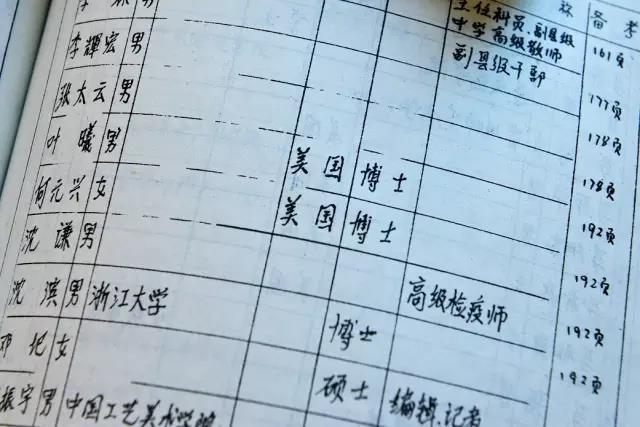 称 备考
男 主任科员、副县级
中学高级教师 161页
李輝宏 男 副县级干部 177页
张太云 男 178页
叶曦 男 美国 博士 178页
何元兴 女 美国 博士 192页
沈谦 男 192页
沈滨 男 浙江大学 高级检疫师 192页
邓 女 博士 192页
振宇 男 中国工艺美术学院 硕士 编辑.记者